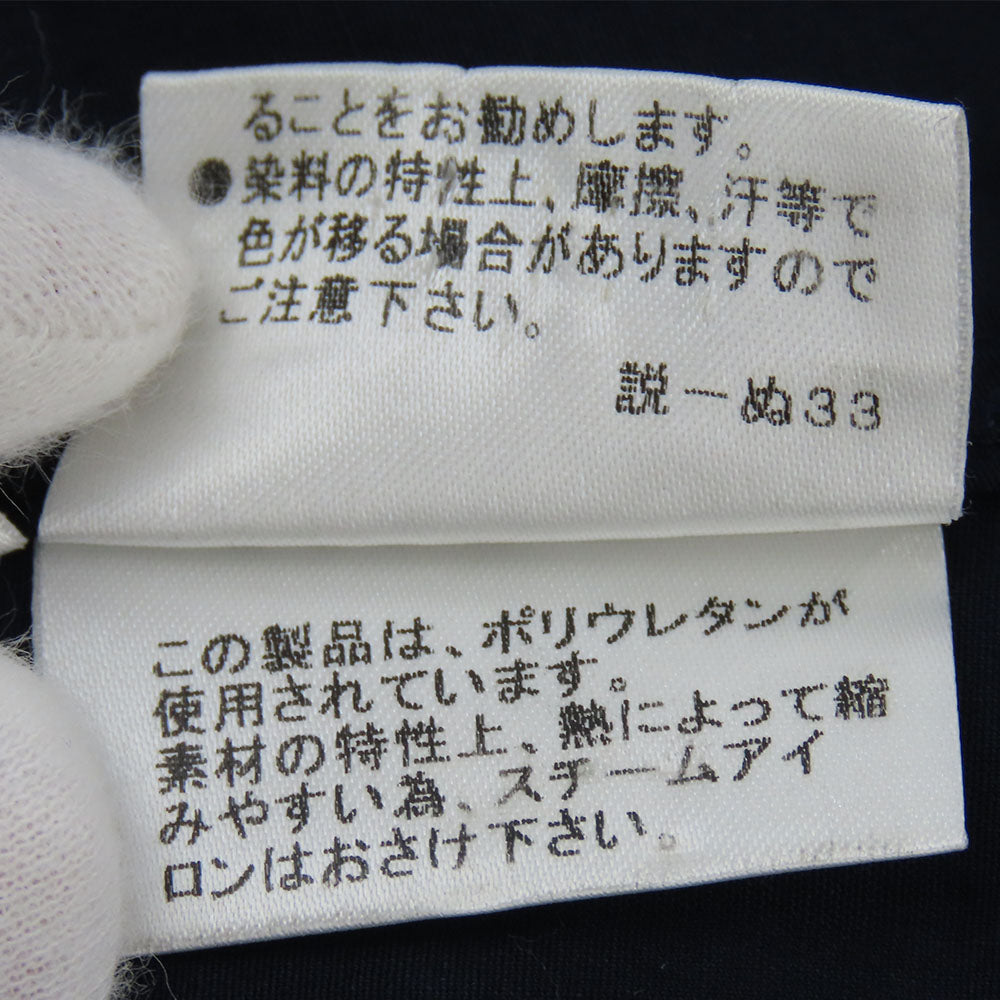 ることをお勧めします。
●染料の特性上、摩擦、汗等で
色が移る場合がありますので
ご注意下さい。
説－ぬ33
この製品は、ポリウレタンが
使用されています。
素材の特性上、熱によって縮
みやすい為、スチームアイ
ロンはおさけ下さい。